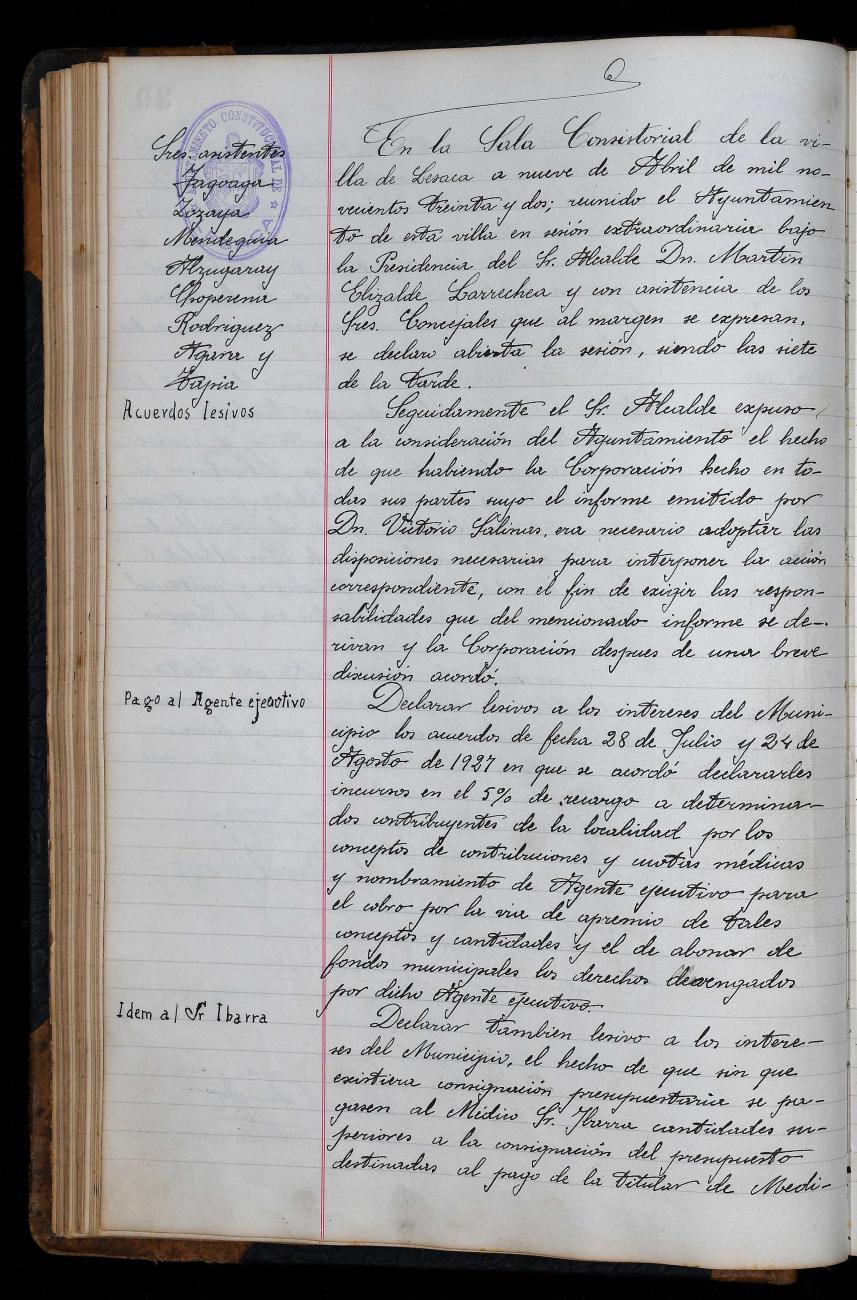 AYUNTAMIENTO CONSTITUCIONAL DE
Sres. asistentes
Zagoaga
Zozaya
Mendeguia
Alzugaray
Goperena
Rodriguez
Agara y
Tapia
En la Sala Consistorial de la vi-
lla de Lesaca a nueve de Abril de mil no-
vecientos treinta y dos; reunido el Ayuntamien
to de esta villa en sesión extraordinaria bajo
la Presidencia del Sr. Alcalde Dn. Martin
Elizalde Larrechea y con asistencia de los
Sres. Concejales que al margen se expresan,
se declaro abierta la sesión, siendo las siete
de la tarde.
Acuerdos lesivos
Seguidamente el Sr. Alcalde expuso
a la consideración del Ayuntamiento el hecho
de que habiendo la Corporación hecho en to-
das sus partes suyo el informe emitido por
Dn. Victorio Salinas, era necesario adoptar las
disposiciones necesarias para interponer la acción
correspondiente, con el fin de exigir las respon-
sabilidades que del mencionado informe se de-
rivan y la Corporación despues de una breve
discusión acordó.
Pago al Agente ejecutivo
Declarar lesivos a los intereses del Muni-
cipio los acuerdos de fecha 28 de Julio y 24 de
Agosto de 1927 en que se acordó declararles
incursos en el 5% de recargo a determina-
dos contribuyentes de la localidad por los
conceptos de contribuciones y cuotas médicas
y nombramiento de Agente ejecutivo para
el cobro por la via de apremio de tales
conceptos y cantidades y el de abonar de
fondos municipales los derechos devengados
por dicho Agente ejecutivo.
Idem al Sr Ibarra
Declarar tambien lesivo a los intere-
ses del Municipio, el hecho de que sin que
existiera consignación presupuestaria se pa-
gasen al Médico Sr. Ibarra cantidades su-
periores a la consignación del presupuesto
destinadas al pago de la titular de Medi-